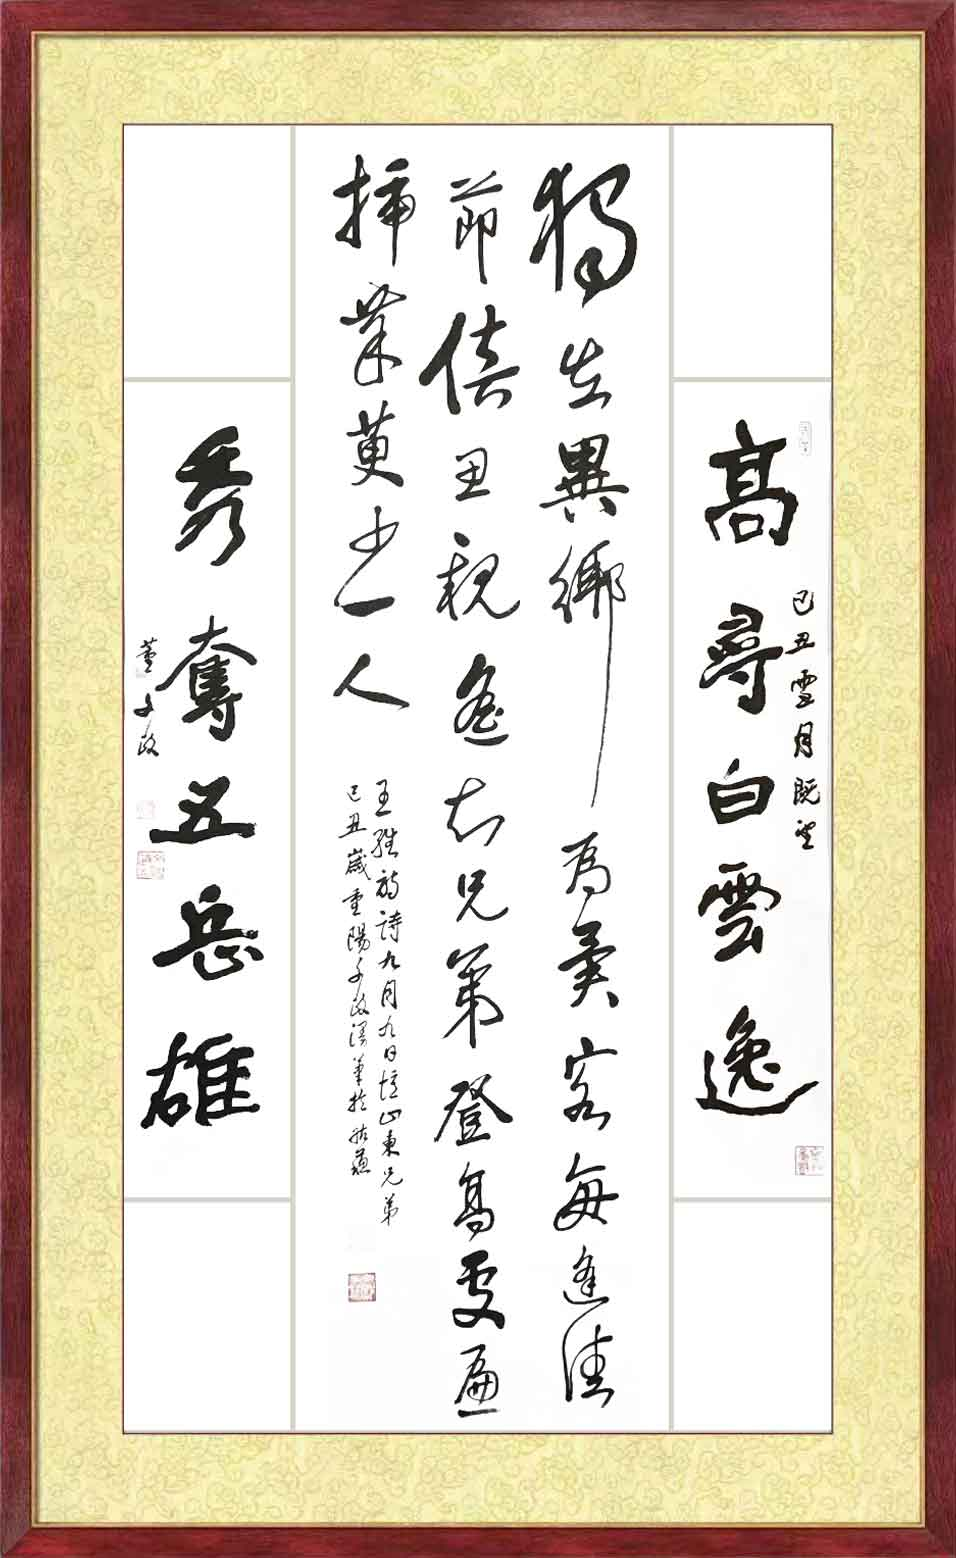 己丑雪月既望
高尋白雲逸
獨在異鄉為異客每逢佳
節倍思親遙知兄弟登高處遍
插茱萸少一人
王維詩九月九日憶山東兄弟
己丑歲重陽文政筆於
秀奪五岳雄
董文政